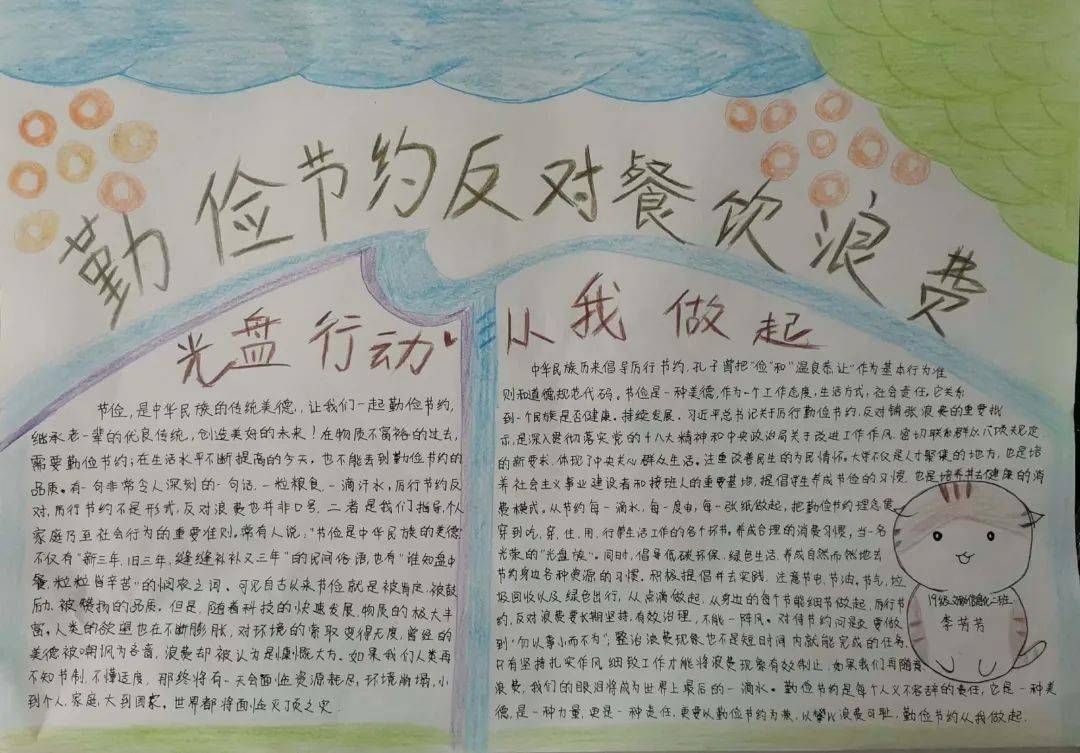 勤俭节约反对餐饮浪费
光盘行动
从我做起
节俭，是中华民族的传统美德，让我们一起勤俭节约，
继承老一辈的优良传统，创造美好的未来！在物质不富裕的过去，
需要勤俭节约；在生活水平不断提高的今天，也不能丢到勤俭节约的
品质。有一句非常令人深刻的一句话，一粒粮食，一滴汗水，厉行节约反
对，厉行节约不是形式，反对浪费也并非口号，二者是我们指导个人
家庭乃至社会行为的重要准则。常有人说："节俭是中华民族的美德
不仅有"新三年，旧三年，缝缝补补又三年"的民间俗语，也有"谁知盘中
餐，粒粒皆辛苦"的悯农之词。可见自古以来节俭就是被肯定，被鼓
励，被赞扬的品质。但是，随着科技的快速发展，物质的极大丰
富。人类的欲望也在不断膨胀，对环境的索取变得无度，曾经的
美德被嘲讽为吝啬，浪费却被认为是慷慨大方。如果我们人类再
不知节制，不懂适度，那终将有一天会面临资源耗尽，环境崩塌，小
到个人，家庭，大到国家。世界都将面临灭顶之灾.
中华民族历来倡导厉行节约，孔子曾把"俭"和"温良恭让"作为基本行为准
则和道德规范代码。节俭是一种美德，作为一个工作态度，生活方式，社会责任，它关系
到一个民族是否健康。持续发展。习近平总书记关于厉行勤俭节约，反对铺张浪费的重要批
示，是深入贯彻落实党的十八大精神和中央政治局关于改进工作作风，密切联系群众八项规定
的新要求，体现了中央关心群众生活。注重改善民生的为民情怀。大学不仅是人才聚集的地方，也是培
养社会主义事业建设者和接班人的重要基地，提倡学生养成节俭的习惯，也是培养其去健康的消
费模式。从节约每一滴水，每一度电，每一张纸做起，把勤俭节约理念贯
穿到吃，穿，住，用，行等生活工作的各个环节。养成合理的消费习惯，当一名
光荣的"光盘族"。同时，倡导低碳环保，绿色生活，养成自然而然地去
节约身边各种资源的习惯。积极提倡并去实践，注意节电，节油，节气，垃
圾回收以及绿色出行，从点滴做起，从身边的每个节能细节做起，厉行节
约，反对浪费要长期坚持，有效治理，不能一阵风。对待节约问题更要做
到"勿以事小而不为"；整治浪费现象也不是短时间内就能完成的任务，
只有坚持扎实作风，细致工作才能将浪费现象有效制止，如果我们再随意
浪费，我们的眼泪将成为世界上最后的一滴水。勤俭节约是每个人义不容辞的责任，它是一种美
德，是一种力量，更是一种责任，更要以勤俭节约为荣，以攀比浪费可耻，勤俭节约从我做起.
19级
二班
李芳芳